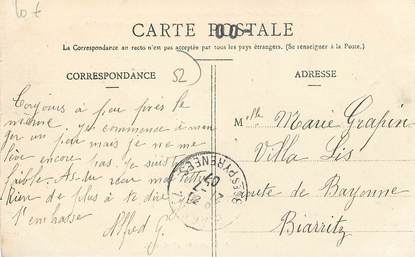 10 €
CARTE POSTALE
La Correspondance au recto n'est pas acceptée par tous les pays étrangers. (Se renseigner à la Poste.)
CORRESPONDANCE
52
Toujours à peu près le
même. Je commence à man
ger un peu mais je ne me
lève encore pas. Je suis
faible. As tu reçu ma lettre
Rien de plus à te dire
t'embrasse
Alfred G.
ADRESSE
Melle Marie Grapin
Villa Lis
route de Bayonne
Biarritz
SES PYRENEES
07